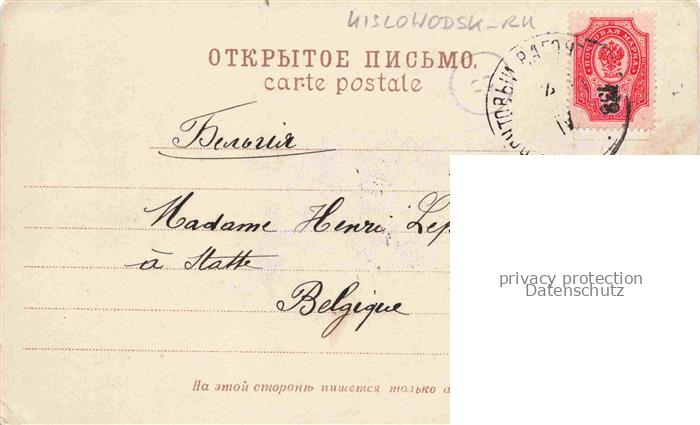 KISLOWODSK-RU
ОТКРЫТОЕ ПИСЬМО.
carte postale
ПОЧТОВАЯ МАРКА
ПОЧТОВЫЙ ВАГОНЪ
138
Бельгія
Madame Henri Lep
à Statte
Belgique
privacy protection
Datenschutz
На этой сторонѣ пишется только а